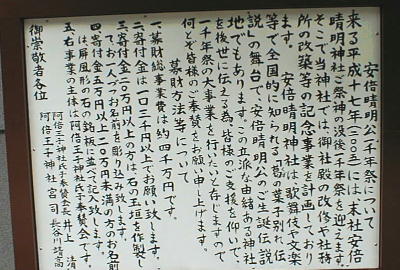 安倍晴明公一千年祭について
来る平成十七年(二〇〇五)には、末社安倍
晴明神社ご祭神の没後一千年祭を迎えます。
そこで当神社では、御社殿の改修や社務
所の改築等の記念事業を計画しており
ます。 安倍晴明神社は、歌舞伎や文楽
等で全国的に知られる「葛の葉子別れ伝
説」の舞台で、安倍晴明公のご生誕伝説
地でもあります。この立派な由緒ある神社
を後世に伝える為、皆様のご支援を仰いで、
一千年祭の大事業を行いたいと存じますので
何とぞ皆様のご奉賛をお願い申し上げます。
募財方法等について
一、募財総事業費は約四千万円です。
二、寄付金は一口三千円でお願い致します。
三、寄付金二〇万円以上の方は、石の玉垣を作製し
てお一人づつお名前を彫り込み致します。
四、寄付金一万円以上二〇万円未満の方のお名前
は、屏風形の石の銘板に並べて記入致します。
五、右事業の主体は、阿倍王子神社氏子奉賛会です。
阿倍王子神社氏子奉賛会会長 井上 清
阿倍王子神社 宮司 長谷川靖高
御崇敬者各位